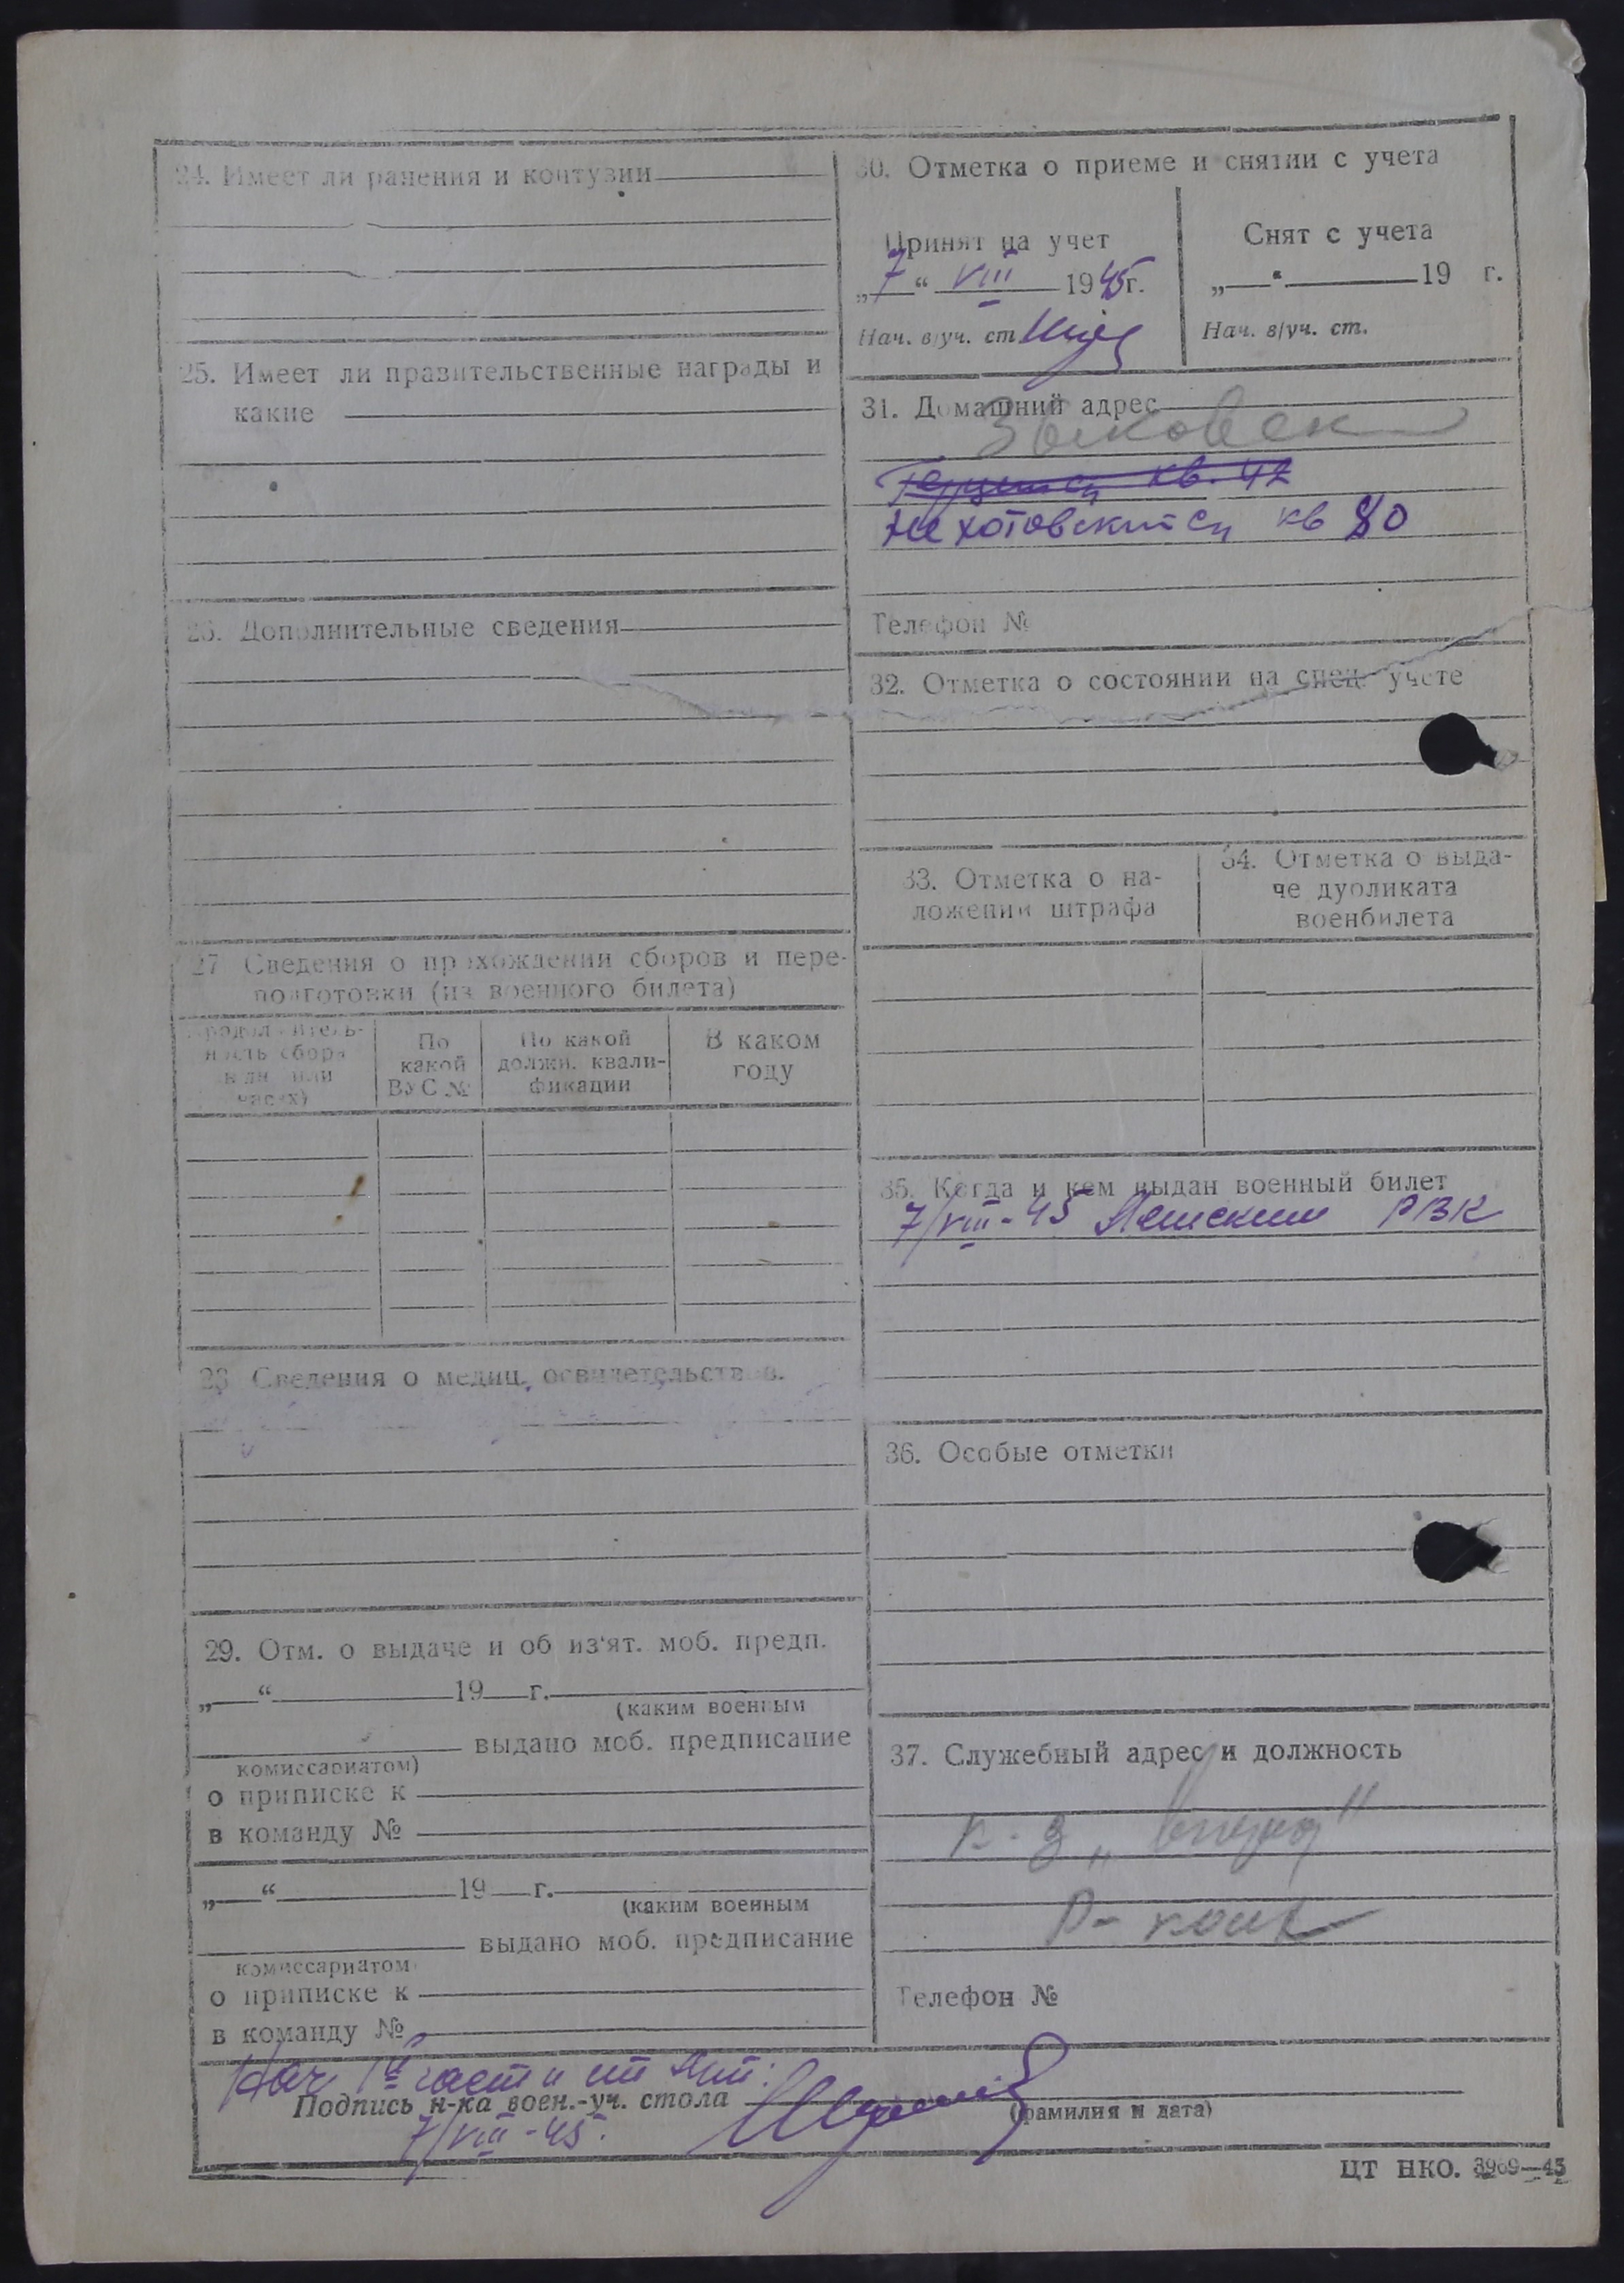 24. Имеет ли ранения и контузии
25. Имеет ли правительственные награды и
какие
26. Дополнительные сведения
27 Сведения о прохождении сборов и пере-
подготовки (из военного билета)
Продолжитель-
ность сбора
в дн. или
часах)
По
какой
ВУС №
По какой
должн. квали-
фикации
В каком
году
28 Сведения о медиц. освидетельствов.
29. Отм. о выдаче и об из'ят. моб. предп.
„ “ 19 г.
(каким военным
выдано моб. предписание
комиссариатом)
о приписке к
в команду №
„ “ 19 г.
(каким военным
выдано моб. предписание
комиссариатом)
о приписке к
в команду №
30. Отметка о приеме и снятии с учета
Принят на учет
„7“ VIII 1945г.
Нач. в/уч. ст
Снят с учета
„ “ 19 г.
Нач. в/уч. ст.
31. Домашний адрес
кв. 42
кв 80
Телефон №
32. Отметка о состоянии на спец. учете
33. Отметка о на-
ложении штрафа
34. Отметка о выда-
че дубликата
военбилета
35. Когда и кем выдан военный билет
7/VIII-45 РВК
36. Особые отметки
37. Служебный адрес и должность
к-з „ "
Р-
Телефон №
Нач 1й части
Подпись н-ка воен.-уч. стола
(фамилия и дата)
7/VIII-45.
ЦТ НКО. 3969—45